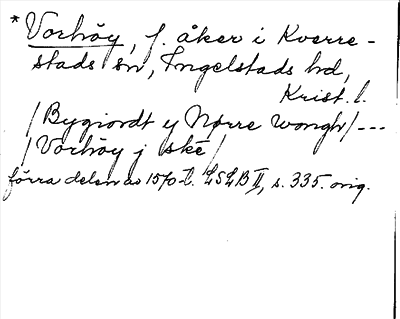 *Vorhöy, f. åker i Kverre-
stads sn, Ingelstads hd,
Krist. l.
/Bygiordt y Nørre wongh/---
/Vorhöy j ské/
förra delen av 1570-t. LSLB II, s. 335. orig.